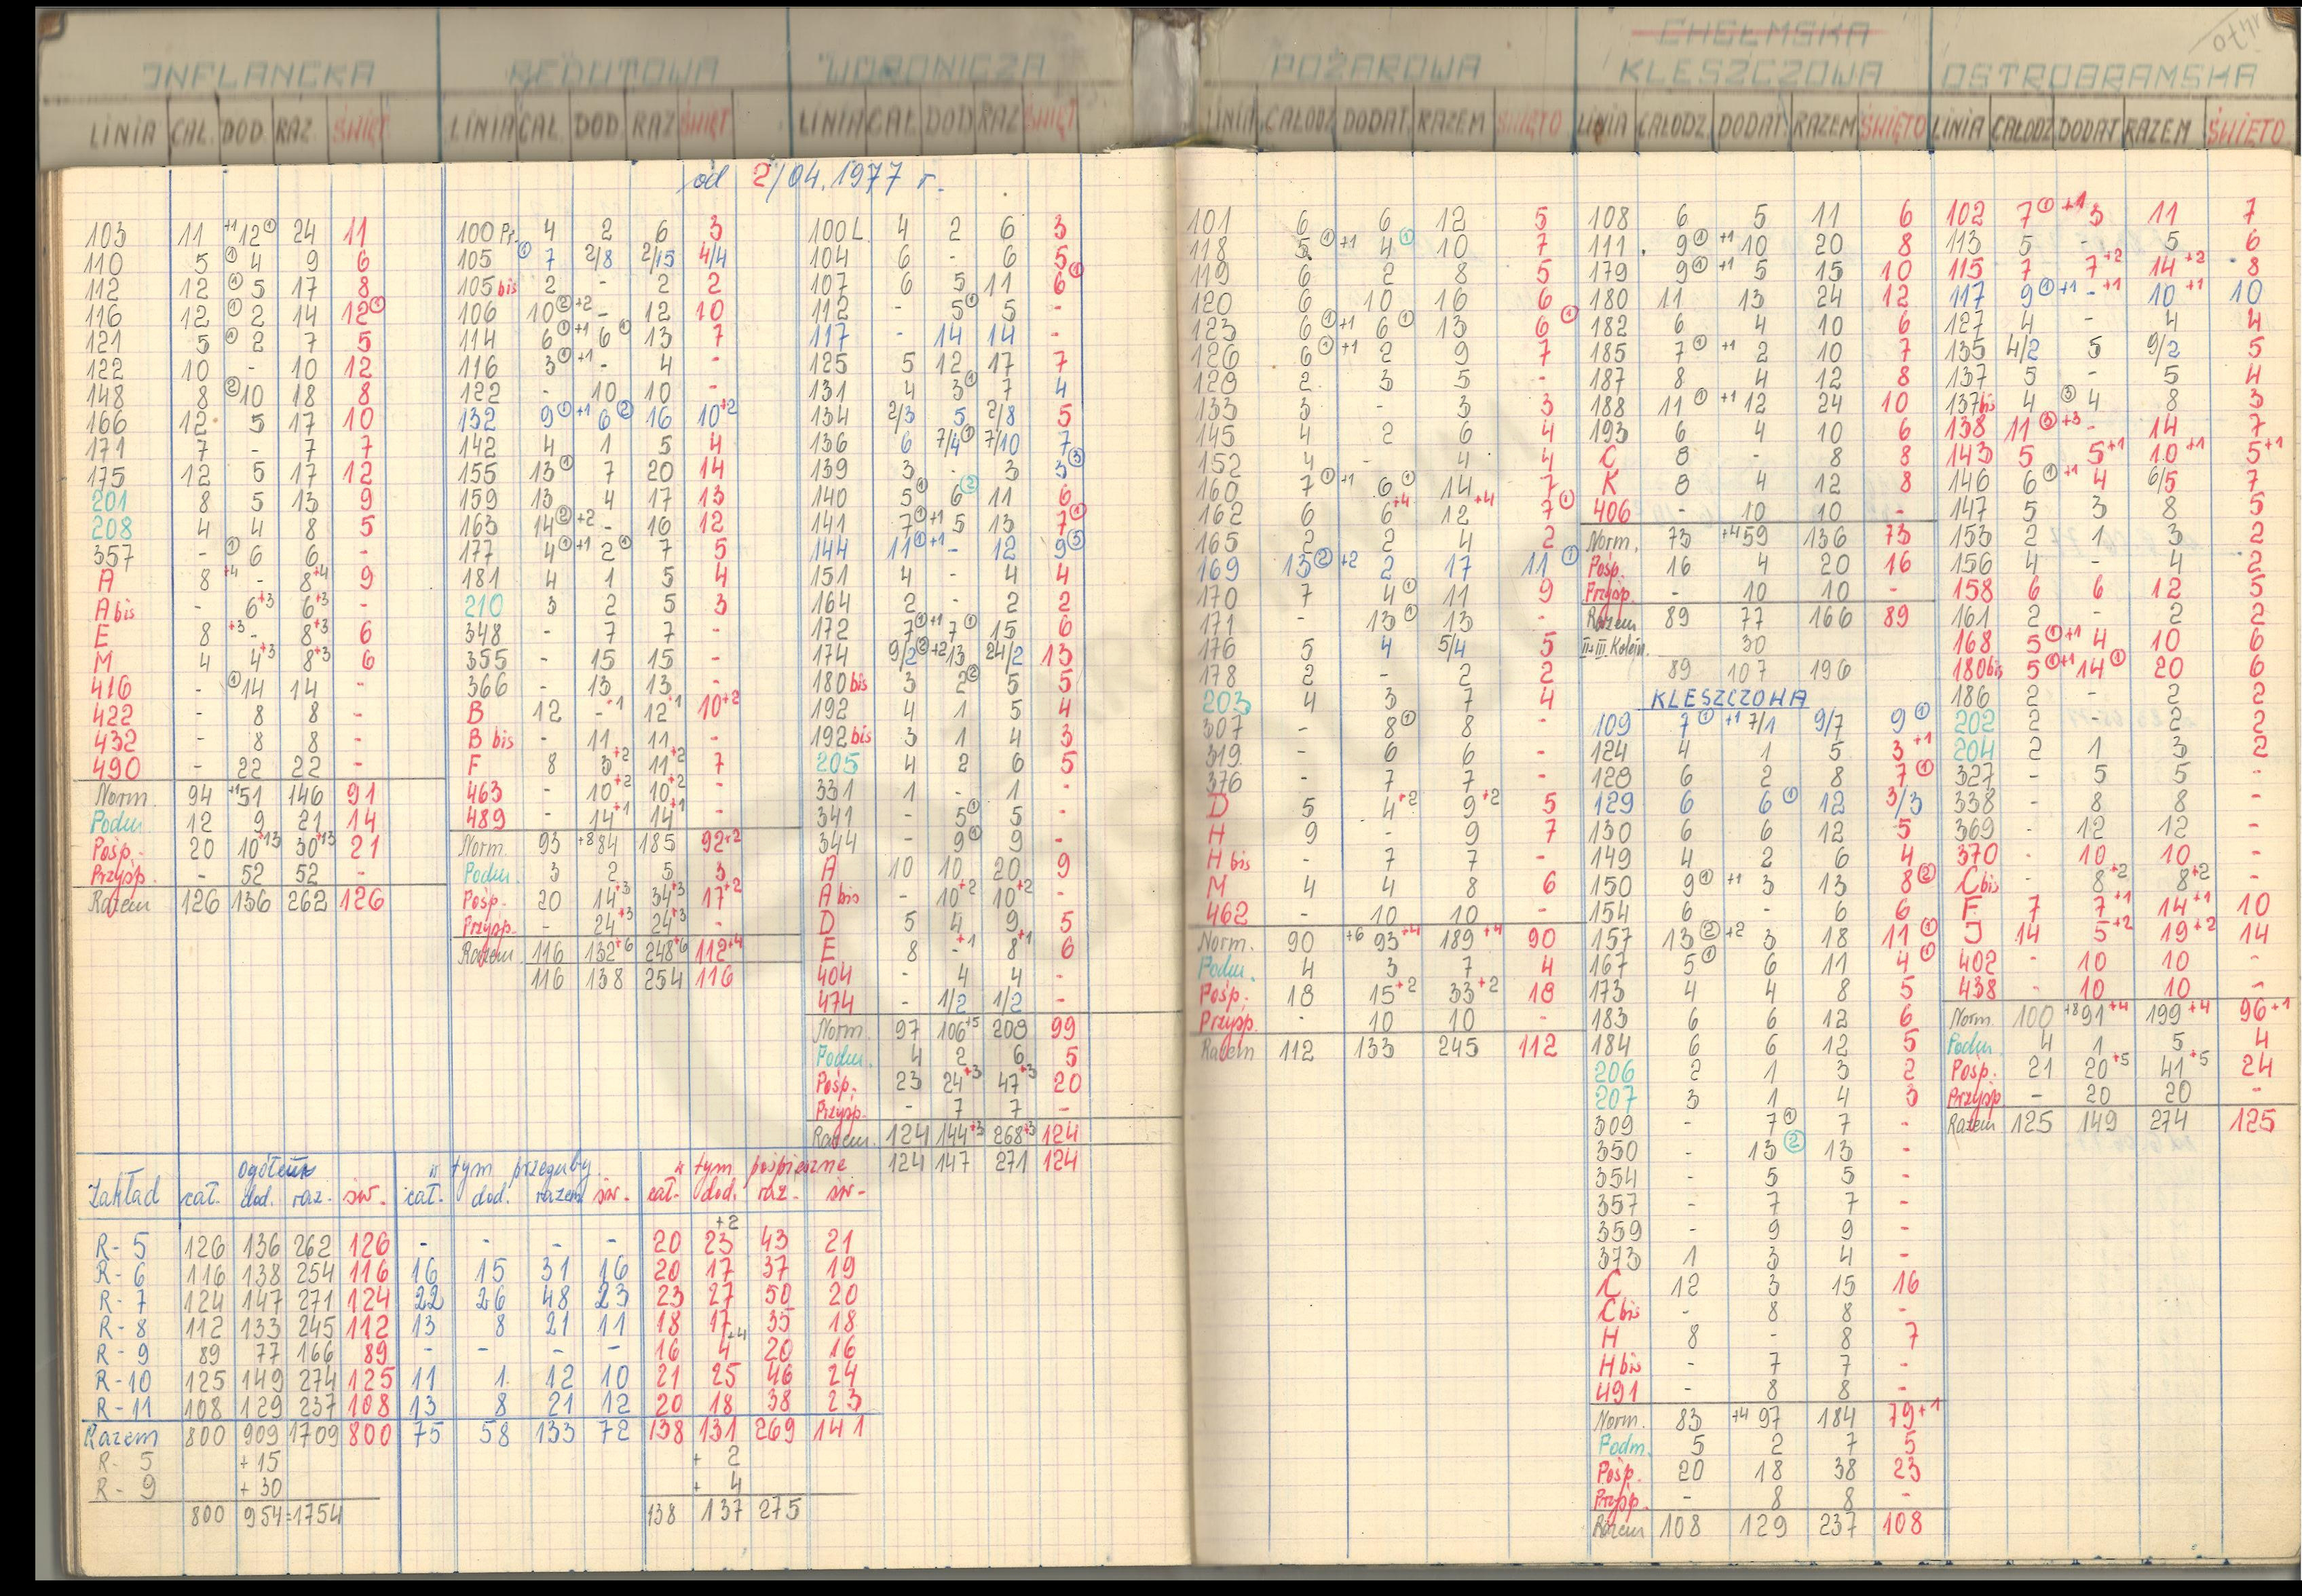 INFLANCKA
LINIA CAŁ. DOD. RAZ. ŚWIĘT
103 11 +1 12① 24 11
110 5 ① 4 9 6
112 12 ① 5 17 8
116 12 ① 2 14 12①
121 5 ① 2 7 5
122 10 - 10 12
148 8 ② 10 18 8
166 12 5 17 10
171 7 - 7 7
175 12 5 17 12
201 8 5 13 9
208 4 4 8 5
357 - ① 6 6 -
A 8 +4 - 8+4 9
A bis - 6+3 6+3 -
E 8 +3 - 8+3 6
M 4 4+3 8+3 6
416 - ① 14 14 -
422 - 8 8 -
432 - 8 8 -
490 - 22 22 -
Norm. 94 +1 51 146 91
Podm. 12 9 21 14
Pośp. 20 10+13 30+13 21
Przysp. - 52 52 -
Razem 126 136 262 126
REDUTOWA
LINIA CAŁ. DOD. RAZ ŚWIĘT
od 2/04.1977 r.
100 Pr. 4 2 6 3
105 ① 7 2/8 2/15 4/4
105 bis 2 - 2 2
106 10② +2 - 12 10
114 6① +1 6① 13 7
116 3① +1 - 4 -
122 - 10 10 -
132 9① +1 6② 16 10+2
142 4 1 5 4
155 13① 7 20 14
159 13 4 17 13
163 14② +2 - 16 12
177 4① +1 2① 7 5
181 4 1 5 4
210 3 2 5 3
348 - 7 7 -
355 - 15 15 -
366 - 13 13 -
B 12 -+1 12+1 10+2
B bis - 11 11 -
F 8 3+2 11+2 7
463 - 10+2 10+2 -
489 - 14+1 14+1 -
Norm. 93 +8 84 185 92+2
Podm. 3 2 5 3
Pośp. 20 14+3 34+3 17+2
Przysp. - 24+3 24+3 -
Razem 116 132+6 248+6 112+4
116 138 254 116
WORONICZA
LINIA CAŁ. DOD RAZ ŚWIĘT
100 L. 4 2 6 3
104 6 - 6 5
107 6 5 11 6①
112 - 5① 5 -
117 - 14 14 -
125 5 12 17 7
131 4 3① 7 4
134 2/3 5 2/8 5
136 6 7/4① 7/10 7
139 3 - 3 3③
140 5① 6② 11 6
141 7① +1 5 13 7①
144 11① +1 - 12 9③
151 4 - 4 4
164 2 - 2 2
172 7① +1 7① 15 6
174 9/2② +2 13 24/2 13
180 bis 3 2② 5 5
192 4 1 5 4
192 bis 3 1 4 3
205 4 2 6 5
331 1 - 1 -
341 - 5① 5 -
344 - 9① 9 -
A 10 10 20 9
A bis - 10+2 10+2 -
D 5 4 9 5
E 8 -+1 8+1 6
404 - 4 4 -
474 - 1/2 1/2 -
Norm. 97 106+5 208 99
Podm. 4 2 6 5
Pośp. 23 24+3 47+3 20
Przysp. - 7 7 -
Razem. 124 144+3 268+3 124
124 147 271 124
ogółem w tym przeguby. w tym pośpieszne
Zakład cał. dod. raz. św. cał. dod. razem św. cał. dod. raz. św.
R-5 126 136 262 126 - - - - 20 23 +2 43 21
R-6 116 138 254 116 16 15 31 16 20 17 37 19
R-7 124 147 271 124 22 26 48 23 23 27 50 20
R-8 112 133 245 112 13 8 21 11 18 17 35 18
R-9 89 77 166 89 - - - - 16 4 +4 20 16
R-10 125 149 274 125 11 1. 12 10 21 25 46 24
R-11 108 129 237 108 13 8 21 12 20 18 38 23
Razem 800 909 1709 800 75 58 133 72 138 131 269 141
R-5 +15 + 2
R-9 +30 + 4
800 954=1754 138 137 275
POŻAROWA
LINIA CAŁODZ. DODAT. RAZEM ŚWIĘTO
101 6 6 12 5
118 5① +1 4① 10 7
119 6 2 8 5
120 6 10 16 6
123 6① +1 6① 13 6①
126 6① +1 2 9 7
129 2 3 5 -
133 3 - 3 3
145 4 2 6 4
152 4 - 4 4
160 7① +1 6① 14 7
162 6 6+4 12+4 7①
165 2 2 4 2
169 13② +2 2 17 11①
170 7 4① 11 9
171 - 13① 13 -
176 5 4 5/4 5
178 2 - 2 2
203 4 3 7 4
307 - 8① 8 -
319 - 6 6 -
376 - 7 7 -
D 5 4+2 9+2 5
H 9 - 9 7
H bis - 7 7 -
M 4 4 8 6
462 - 10 10 -
Norm. 90 +6 93+4 189+4 90
Podm. 4 3 7 4
Pośp. 18 15+2 33+2 18
Przysp. - 10 10 -
Razem 112 133 245 112
CHEŁMSKA
KLESZCZOWA
LINIA CAŁODZ. DODAT. RAZEM ŚWIĘTO
108 6 5 11 6
111 9① +1 10 20 8
179 9① +1 5 15 10
180 11 13 24 12
182 6 4 10 6
185 7① +1 2 10 7
187 8 4 12 8
188 11① +1 12 24 10
193 6 4 10 6
C 8 - 8 8
K 8 4 12 8
406 - 10 10 -
Norm. 73 +4 59 136 73
Pośp. 16 4 20 16
Przysp. - 10 10 -
Razem 89 77 166 89
30
89 107 196
KLESZCZOWA
109 7① +1 7/1 9/7 9①
124 4 1 5 3+1
128 6 2 8 7①
129 6 6① 12 3/3
130 6 6 12 5
149 4 2 6 4
150 9① +1 3 13 8②
154 6 - 6 6
157 13② +2 3 18 11①
167 5① 6 11 4①
173 4 4 8 5
183 6 6 12 6
184 6 6 12 5
206 2 1 3 2
207 3 1 4 3
309 - 7① 7 -
350 - 13② 13 -
354 - 5 5 -
357 - 7 7 -
359 - 9 9 -
373 1 3 4 -
C 12 3 15 16
C bis - 8 8 -
H 8 - 8 7
H bis - 7 7 -
491 - 8 8 -
Norm. 83 +4 97 184 79+1
Podm. 5 2 7 5
Pośp. 20 18 38 23
Przysp. - 8 8 -
Razem 108 129 237 108
OSTROBRAMSKA
LINIA CAŁODZ DODAT RAZEM ŚWIĘTO
102 7① +1 3 11 7
113 5 - 5 6
115 7 7+2 14+2 8
117 9① +1 -+1 10+1 10
127 4 - 4 4
135 4/2 5 9/2 5
137 5 - 5 4
137 bis 4 ③ 4 8 3
138 11③ +3 - 14 7
143 5 5+1 10+1 5+1
146 6① +1 4 6/5 7
147 5 3 8 5
153 2 1 3 2
156 4 - 4 2
158 6 6 12 5
161 2 - 2 2
168 5① +1 4 10 6
180 bis 5① +1 14① 20 6
186 2 - 2 2
202 2 - 2 2
204 2 1 3 2
327 - 5 5 -
338 - 8 8 -
369 - 12 12 -
370 - 10 10 -
C bis - 8+2 8+2 -
F 7 7+1 14+1 10
J 14 5+2 19+2 14
402 - 10 10 -
438 - 10 10 -
Norm. 100 +8 91+4 199+4 96+1
Podm. 4 1 5 4
Pośp. 21 20+5 41+5 24
Przysp - 20 20 -
Razem 125 149 274 125